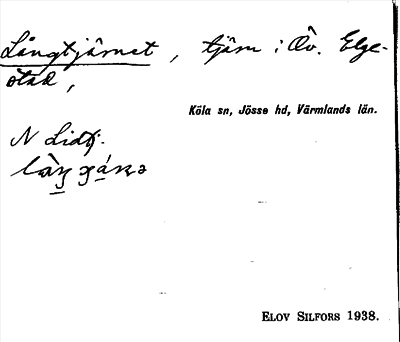 Långtjärnet, tjärn i Öv. Elge-
stad,
Köla sn, Jösse hd, Värmlands län.
N Lidtj.
ELOV SILFORS 1938.